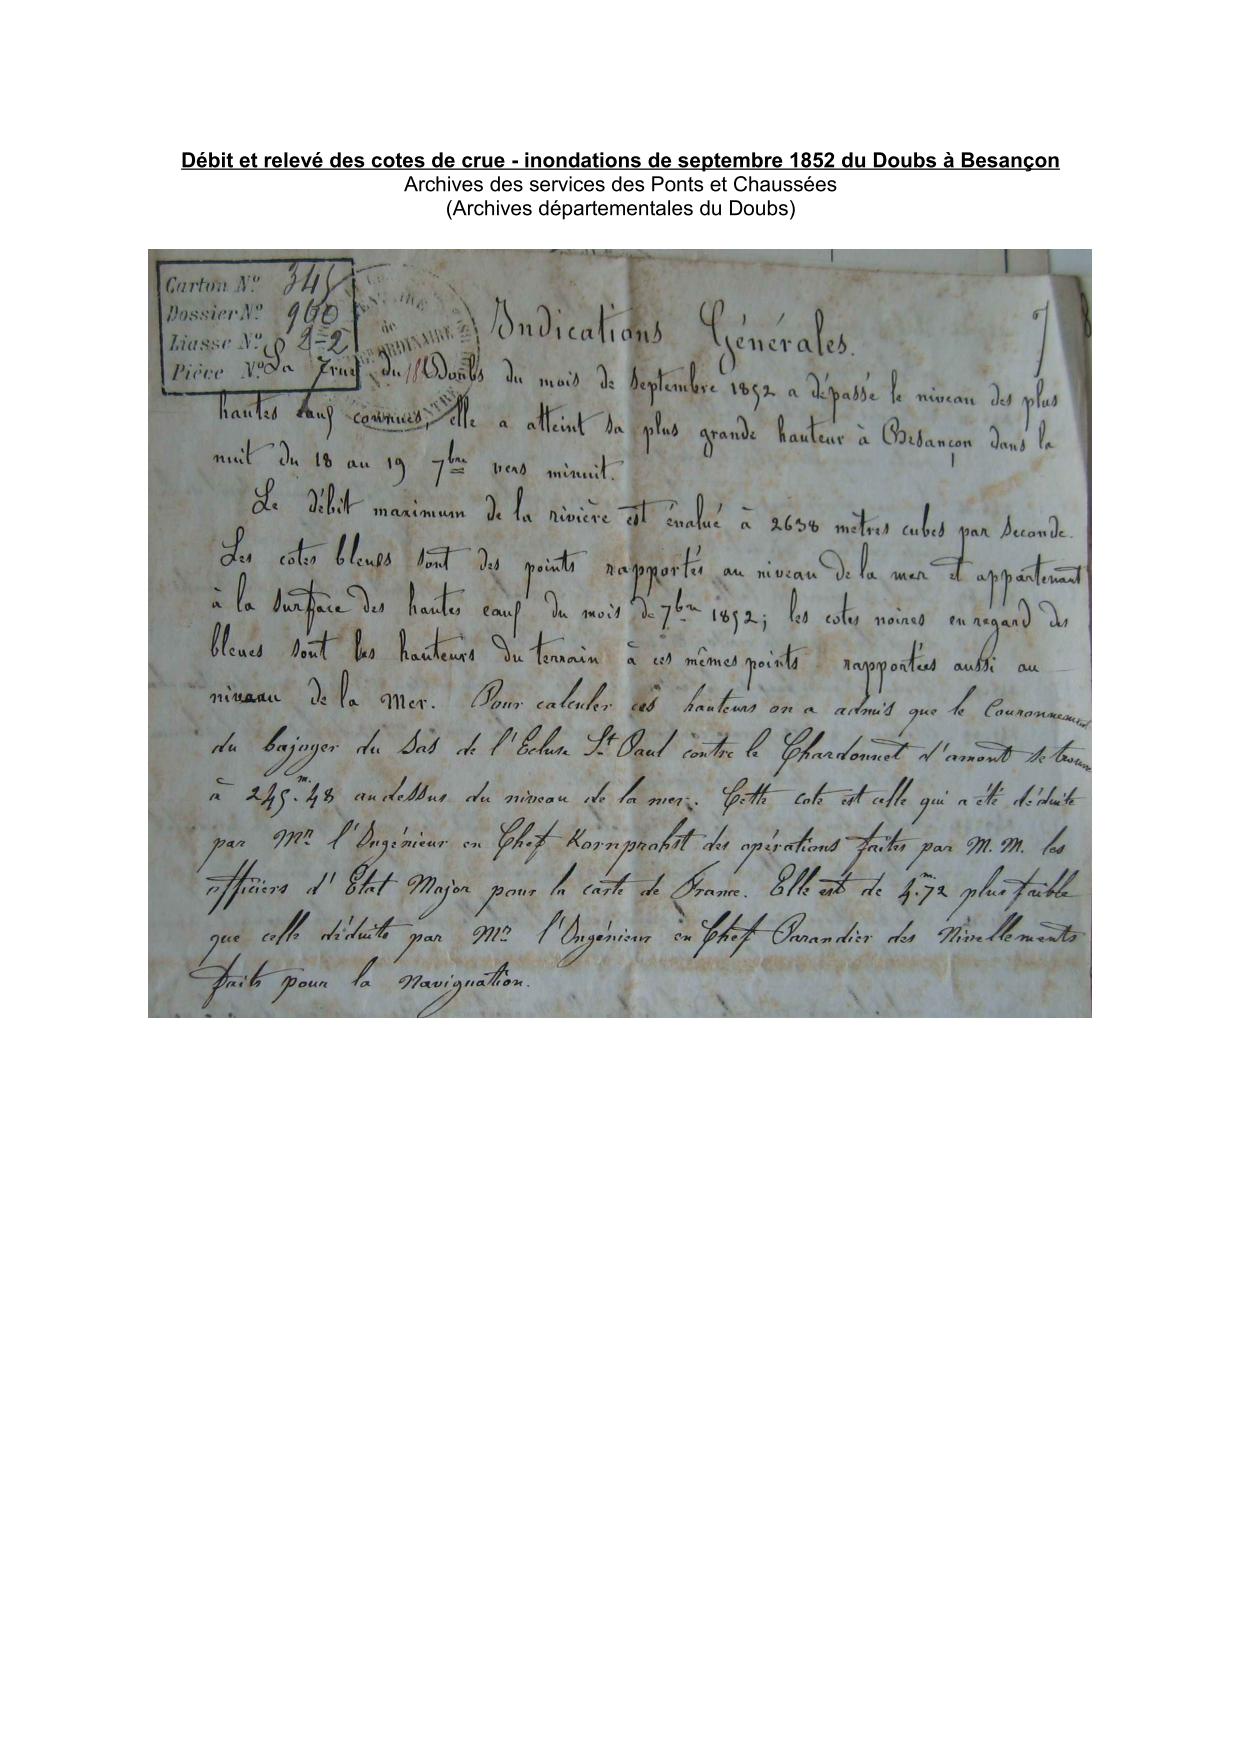 Débit et relevé des cotes de crue - inondations de septembre 1852 du Doubs à Besançon
Archives des services des Ponts et Chaussées
(Archives départementales du Doubs)
Carton Nº 345
Dossier Nº 960
Liasse Nº 2=2
Pièce Nº
Indications Générales. 7
La Crue du Doubs du mois de Septembre 1852 a dépassé le niveau des plus
hautes eaux connues, elle a atteint sa plus grande hauteur à Besançon dans la
nuit du 18 au 19 7bre vers minuit.
Le débit maximum de la rivière est évalué à 2638 mètres cubes par seconde.
Les cotes bleues sont des points rapportés au niveau de la mer et appartenant
à la surface des hautes eaux du mois de 7bre 1852; les cotes noires en regard des
bleues sont les hauteurs du terrain à ces mêmes points rapportées aussi au
niveau de la mer. Pour calculer ces hauteurs on a admis que le Couronnement
du bajoyer du Sas de l'Ecluse St Paul contre le Chardonnet d'amont se trouve
à 245.m48 au dessus du niveau de la mer. Cette cote est celle qui a été déduite
par Mr l'Ingénieur en Chef Kornprobst des opérations faites par M. M. les
officiers d'Etat Major pour la carte de France. Elle est de 4.m72 plus faible
que celle déduite par Mr l'Ingénieur en Chef Parandier des Nivellements
faits pour la Navignation.